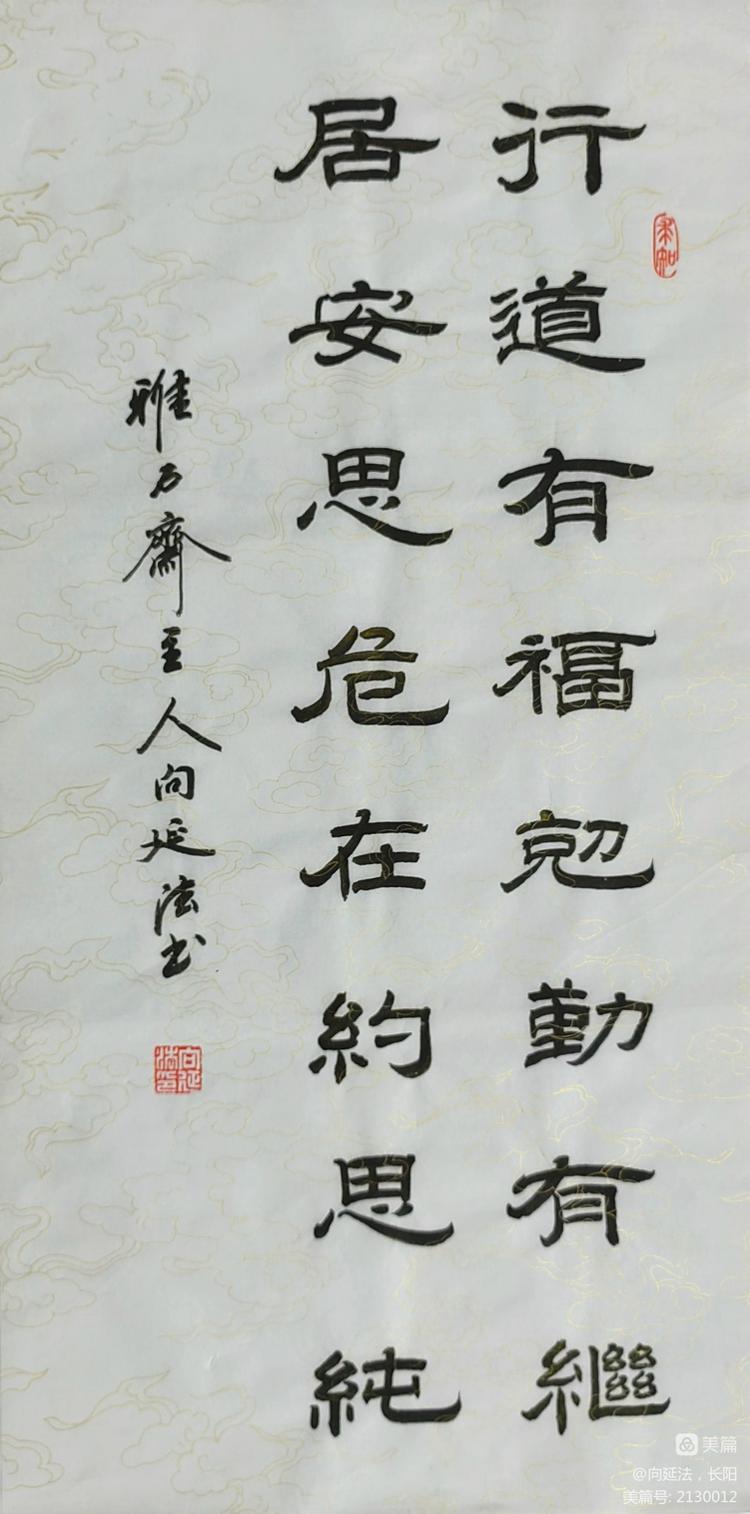 行道有福勤有繼
居安思危在約思純
雅石齋主人向延法书
向延法印
美篇
@向延法，长阳
美篇号: 2130012